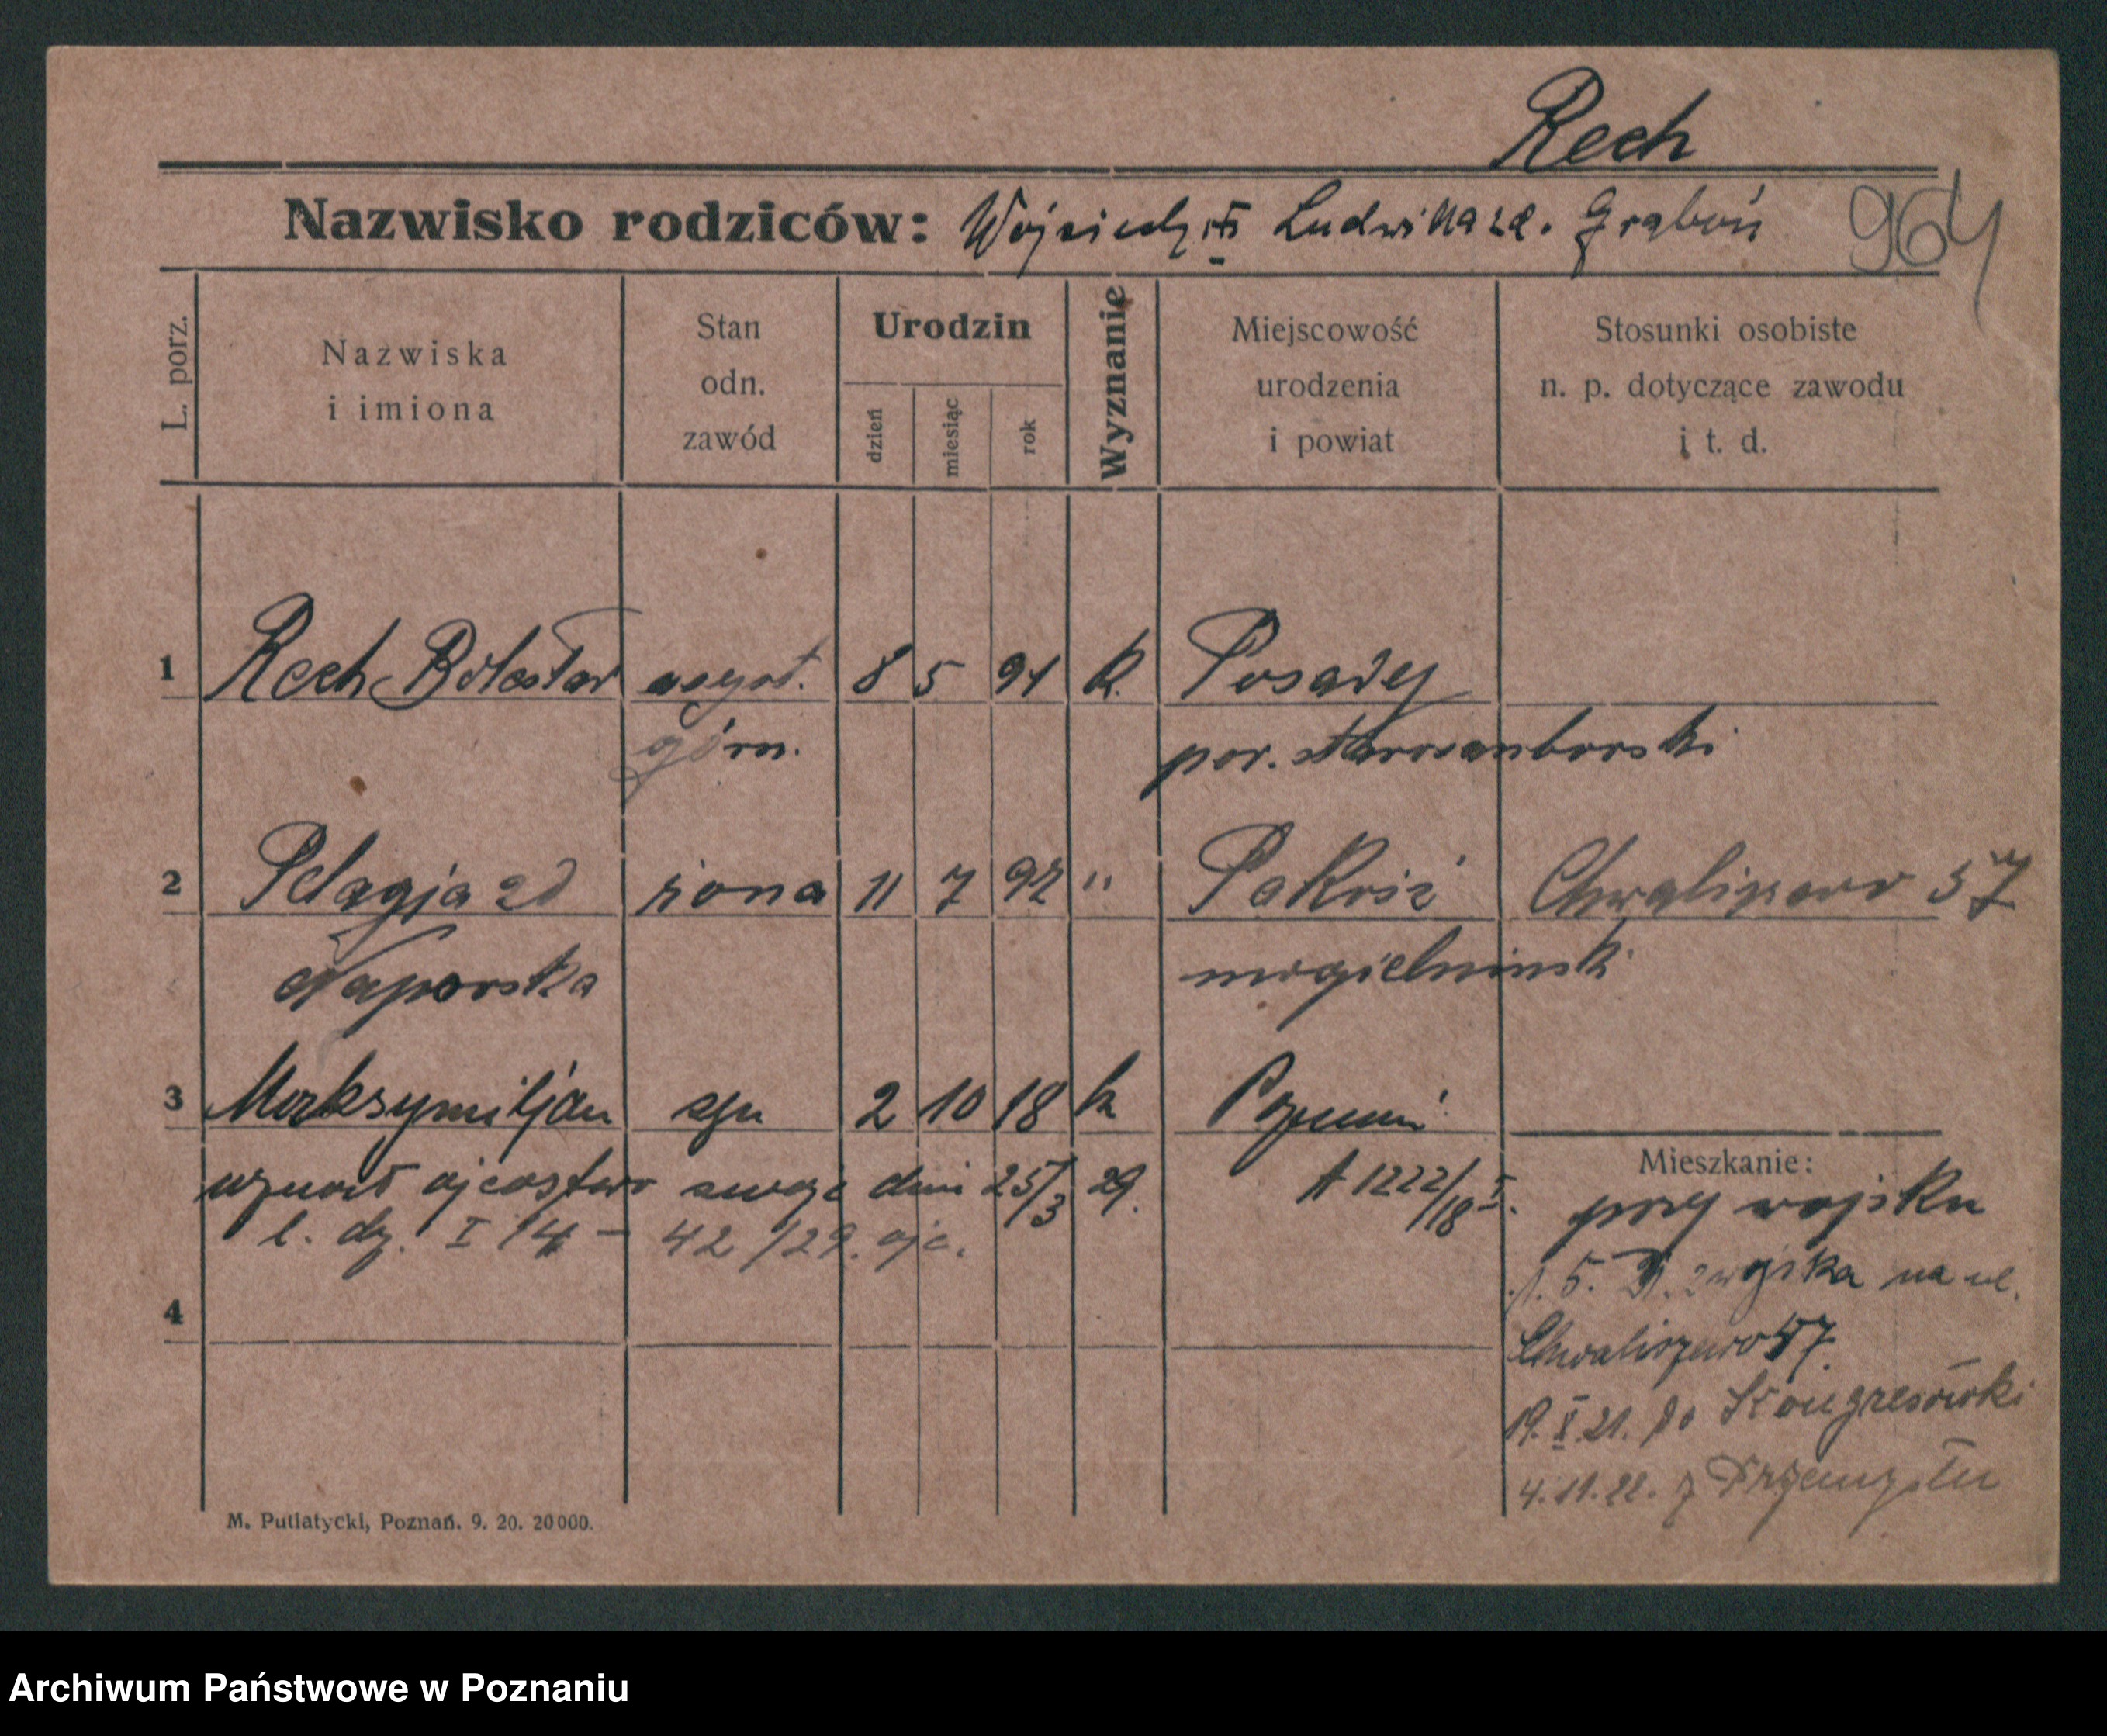 Rech
Nazwisko rodziców: Wojciech i Ludwika zd. Graboń
964
L. porz.
Nazwiska
i imiona
Stan
odn.
zawód
Urodzin
dzień
miesiąc
rok
Wyznanie
Miejscowość
urodzenia
i powiat
Stosunki osobiste
n. p. dotyczące zawodu
i t. d.
1 Rech Bolesław asyst. 8 5 91 k. Posada
górn. pow. starosamborski
2 Pelagja zd żona 11 7 92 " Pakość Chwaliszewo 57
Naporska mogielnicki
3 Maksymiljan syn 2 10 18 k Poznań
uznał ojcostwo swoje dnia 25/3 29. A 1222/18 I.
l. dz. I 14 - 42/29. ojc.
4
Mieszkanie:
przy wojsku
5. z wojska na ul.
Chwaliszewo 57.
19. X. 21. do Kongresówki
4. 11. 22. z Przemyślu
M. Putiatycki, Poznań. 9. 20. 20 000.
Archiwum Państwowe w Poznaniu